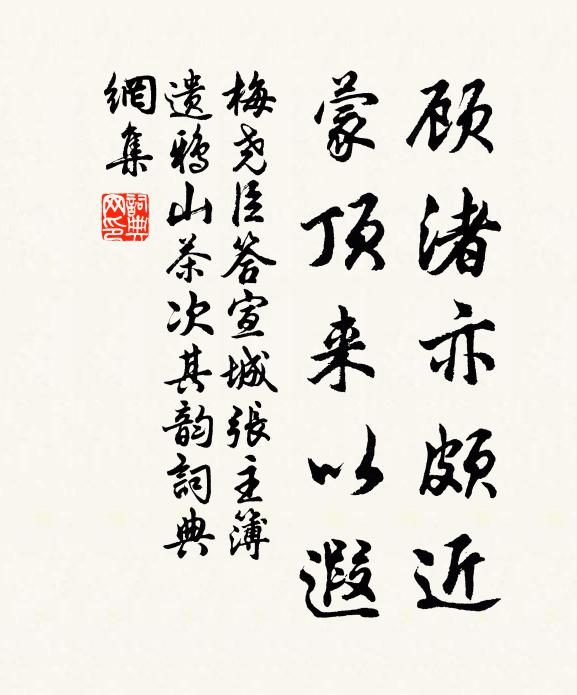 顾渚亦颇近
蒙顶来以遐
梅尧臣答宣城張主簿
遗鴉山茶次其韵詞典
網集
詞典網印